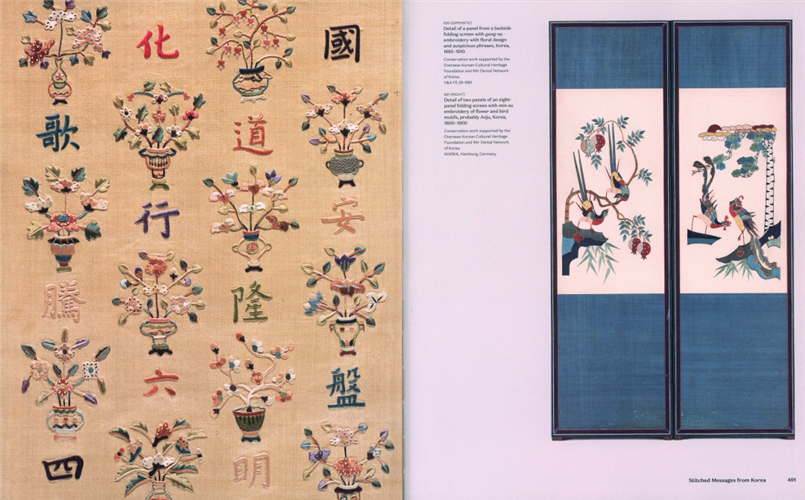 國安盤
道隆明
化行六
歌騰四
[OPPOSITE]
Detail of a panel from a bedside
folding screen with gung-su
embroidery with floral design
and auspicious phrases, Korea,
1880–1910
Conservation work supported by the
Overseas Korean Cultural Heritage
Foundation and Mir Dental Network
of Korea
V&A
[RIGHT]
Detail of two panels of an eight-
panel folding screen with min-su
embroidery of flower and bird
motifs, probably Anju, Korea,
1800–1900
Conservation work supported by the
Overseas Korean Cultural Heritage
Foundation and Mir Dental Network
of Korea
MARKK, Hamburg, Germany
Stitched Messages from Korea 491